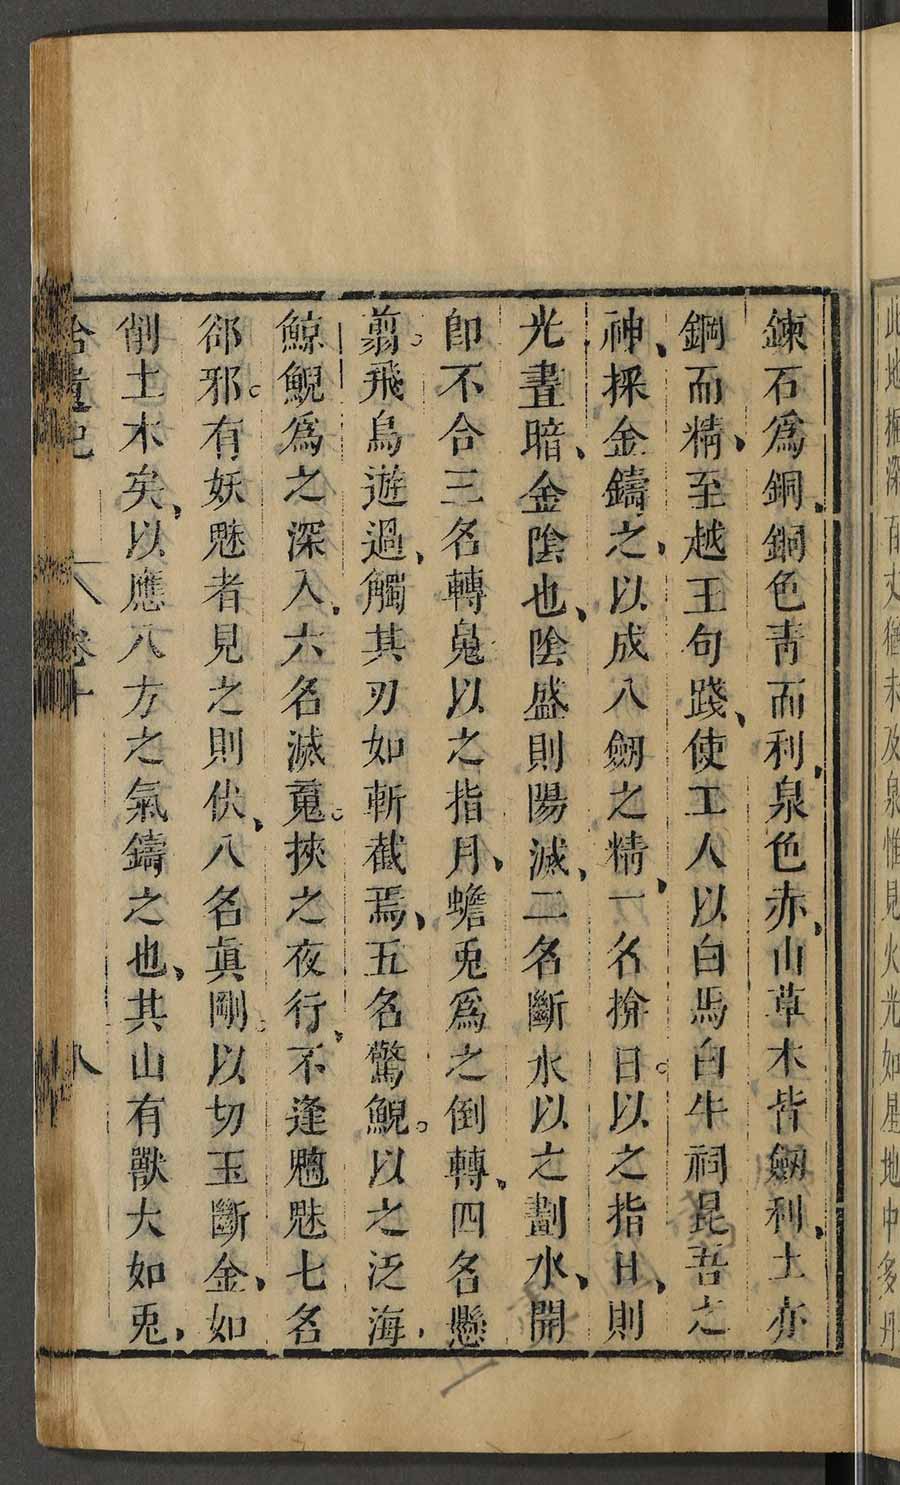 此地掘深百丈猶未及泉惟見火光如星地中多丹
鍊石為銅、銅色青而利、泉色赤、山草木皆劒利、土亦
鋼而精、至越王句踐、使工人以白馬白牛祠昆吾之
神、採金鑄之、以成八劒之精、一名揜日。以之指日、則
光晝暗、金陰也、陰盛則陽滅、二名斷水以之劃水、開
卽不合三名轉䰟以之指月、蟾兎為之倒轉、四名懸
翦。飛鳥遊過、觸其刃如斬截焉、五名驚鯢。以之泛海、
鯨鯢為之深入、六名滅䰟。挾之夜行、不逢魑魅七名
郤邪。有妖魅者見之則伏、八名眞剛。以切玉斷金、如
削土木矣、以應八方之氣鑄之也、其山有獸大如兎、
拾遺記 卷十 八